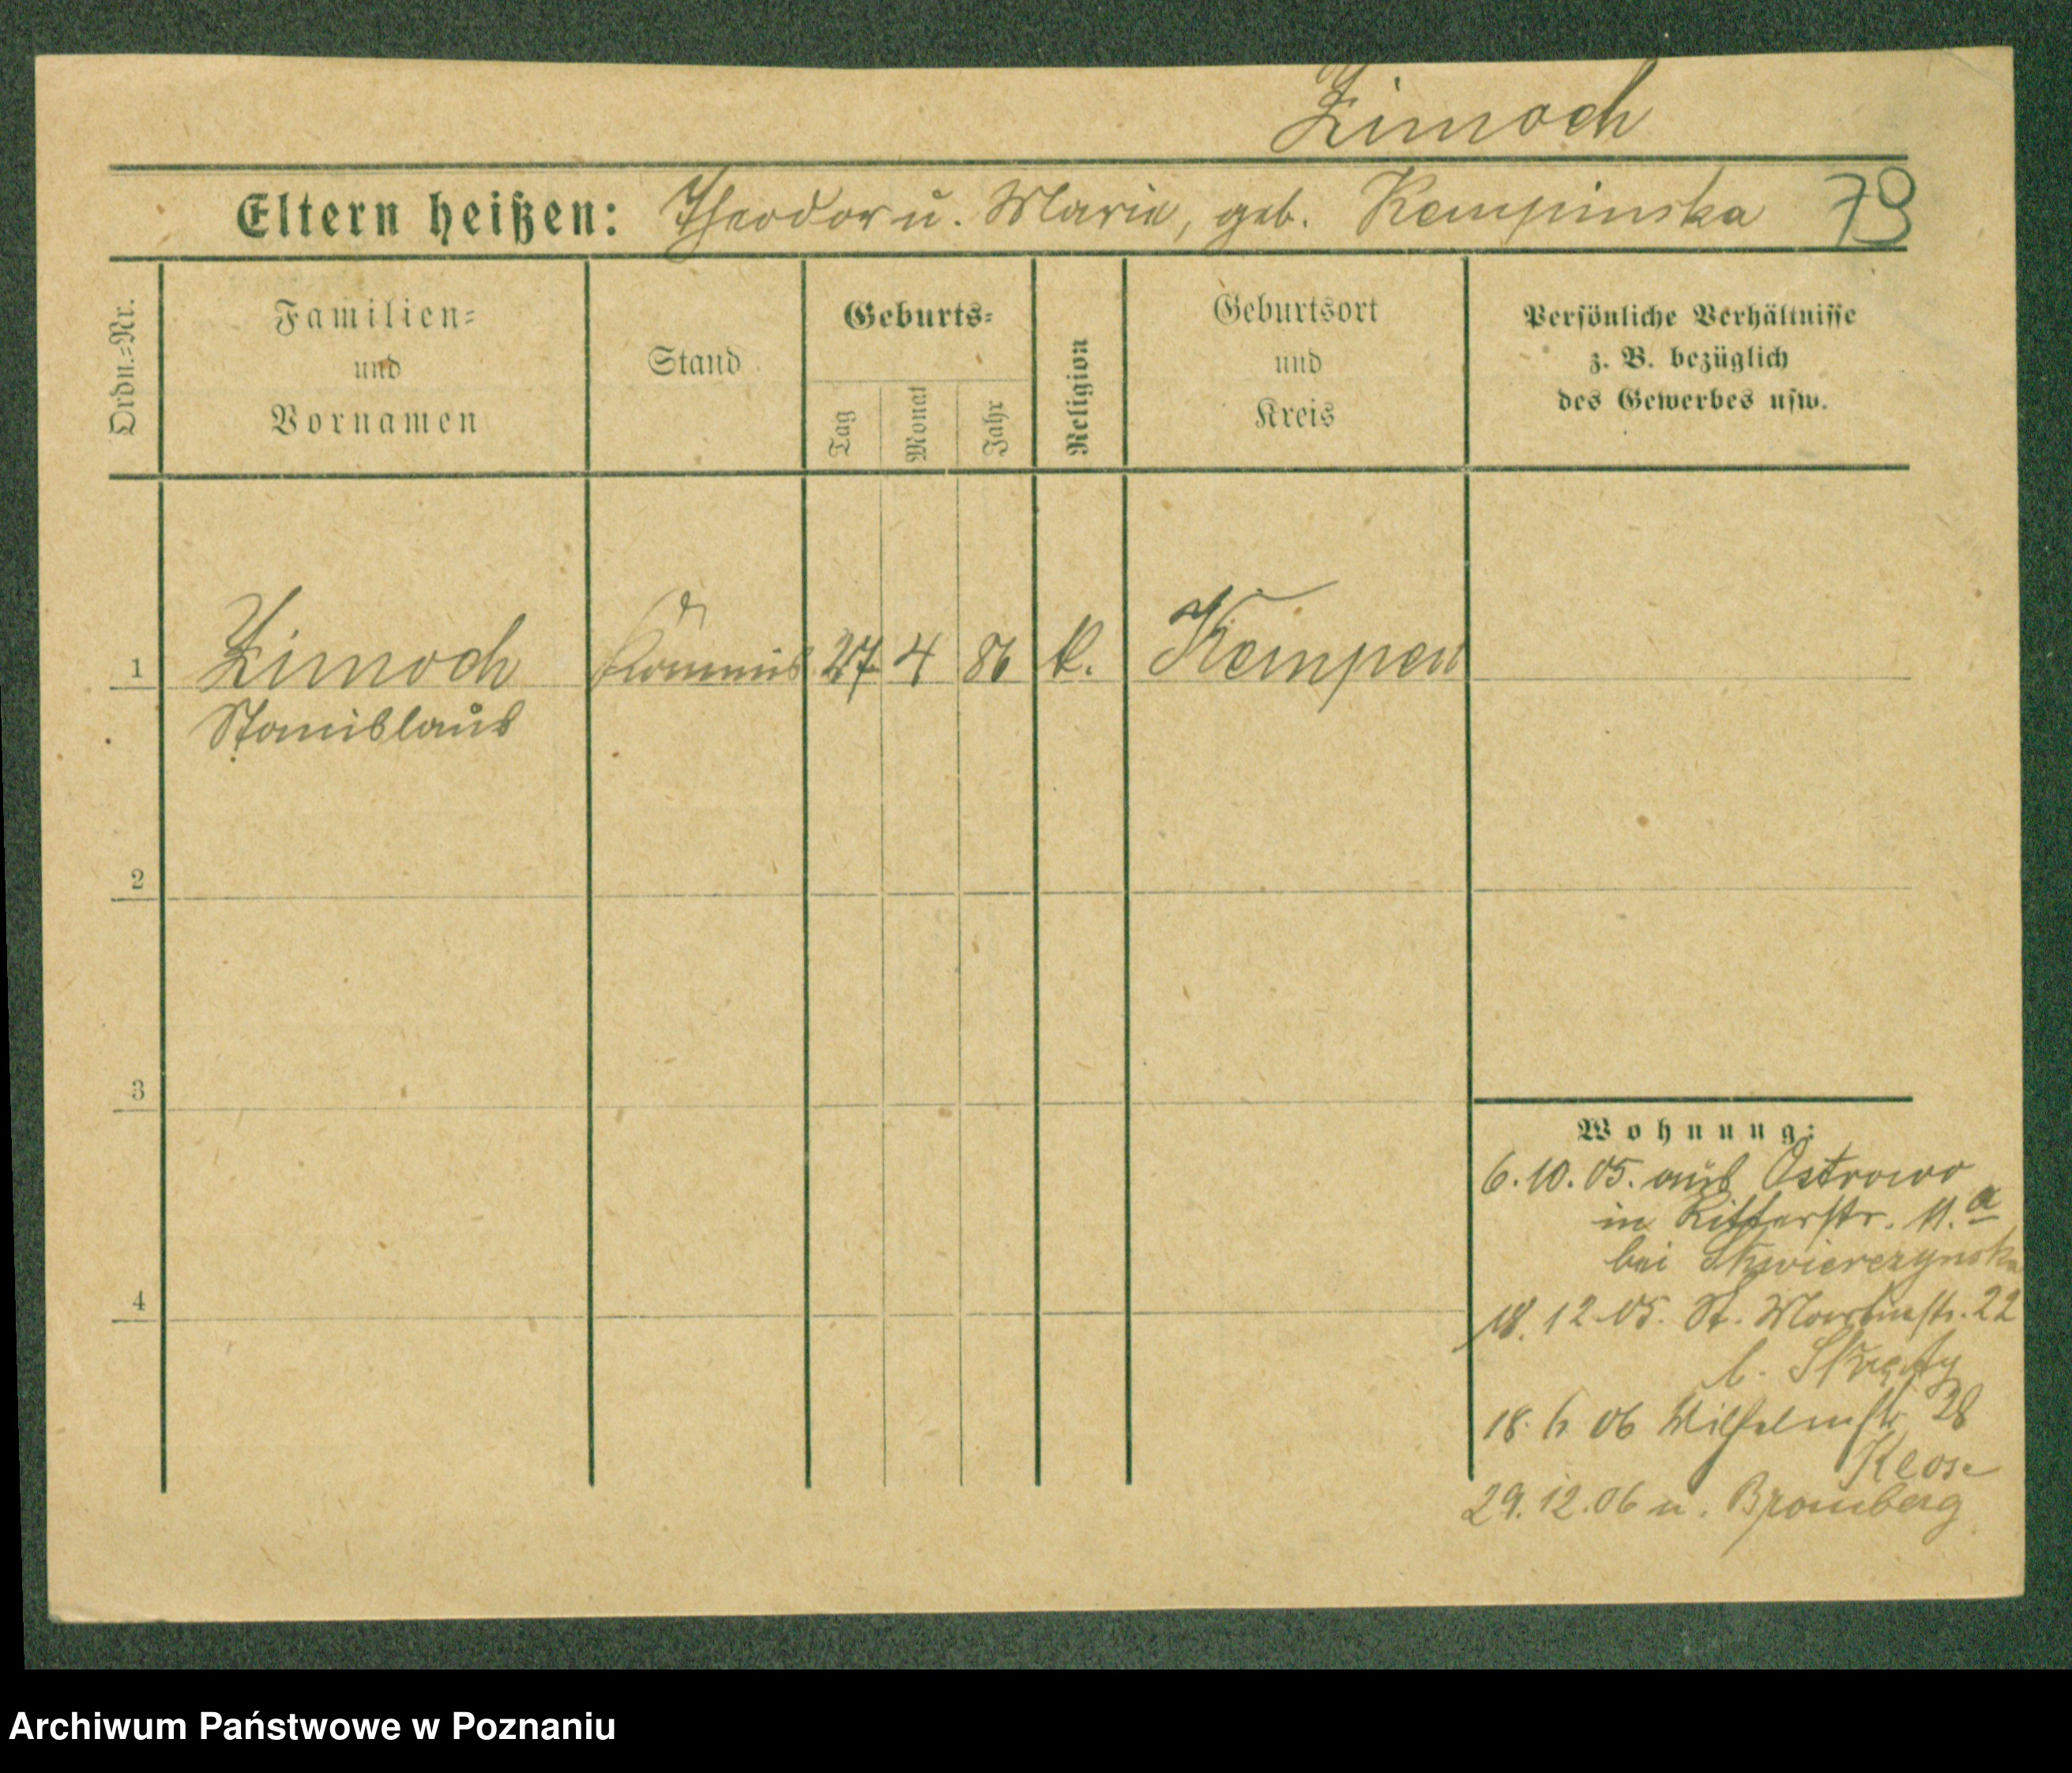 Zimoch
Eltern heißen: Theodor u. Marie, geb. Kempinska 79
Ordn.-Nr.
Familien-
und
Vornamen
Stand
Geburts-
Tag
Monat
Jahr
Religion
Geburtsort
und
Kreis
Persönliche Verhältnisse
z. B. bezüglich
des Gewerbes usw.
1 Zimoch Kommis 27 4 86 k. Kempen
Stanislaus
2
3
4
Wohnung:
6.10.05. aus Ostrowo
in Ritterstr. 11.a
bei Skwierczynska
18.12.05. St. Martinstr. 22
b.
18. 6 06 Wilhelmstr 28
Klose
29.12.06 n. Bromberg
Archiwum Państwowe w Poznaniu